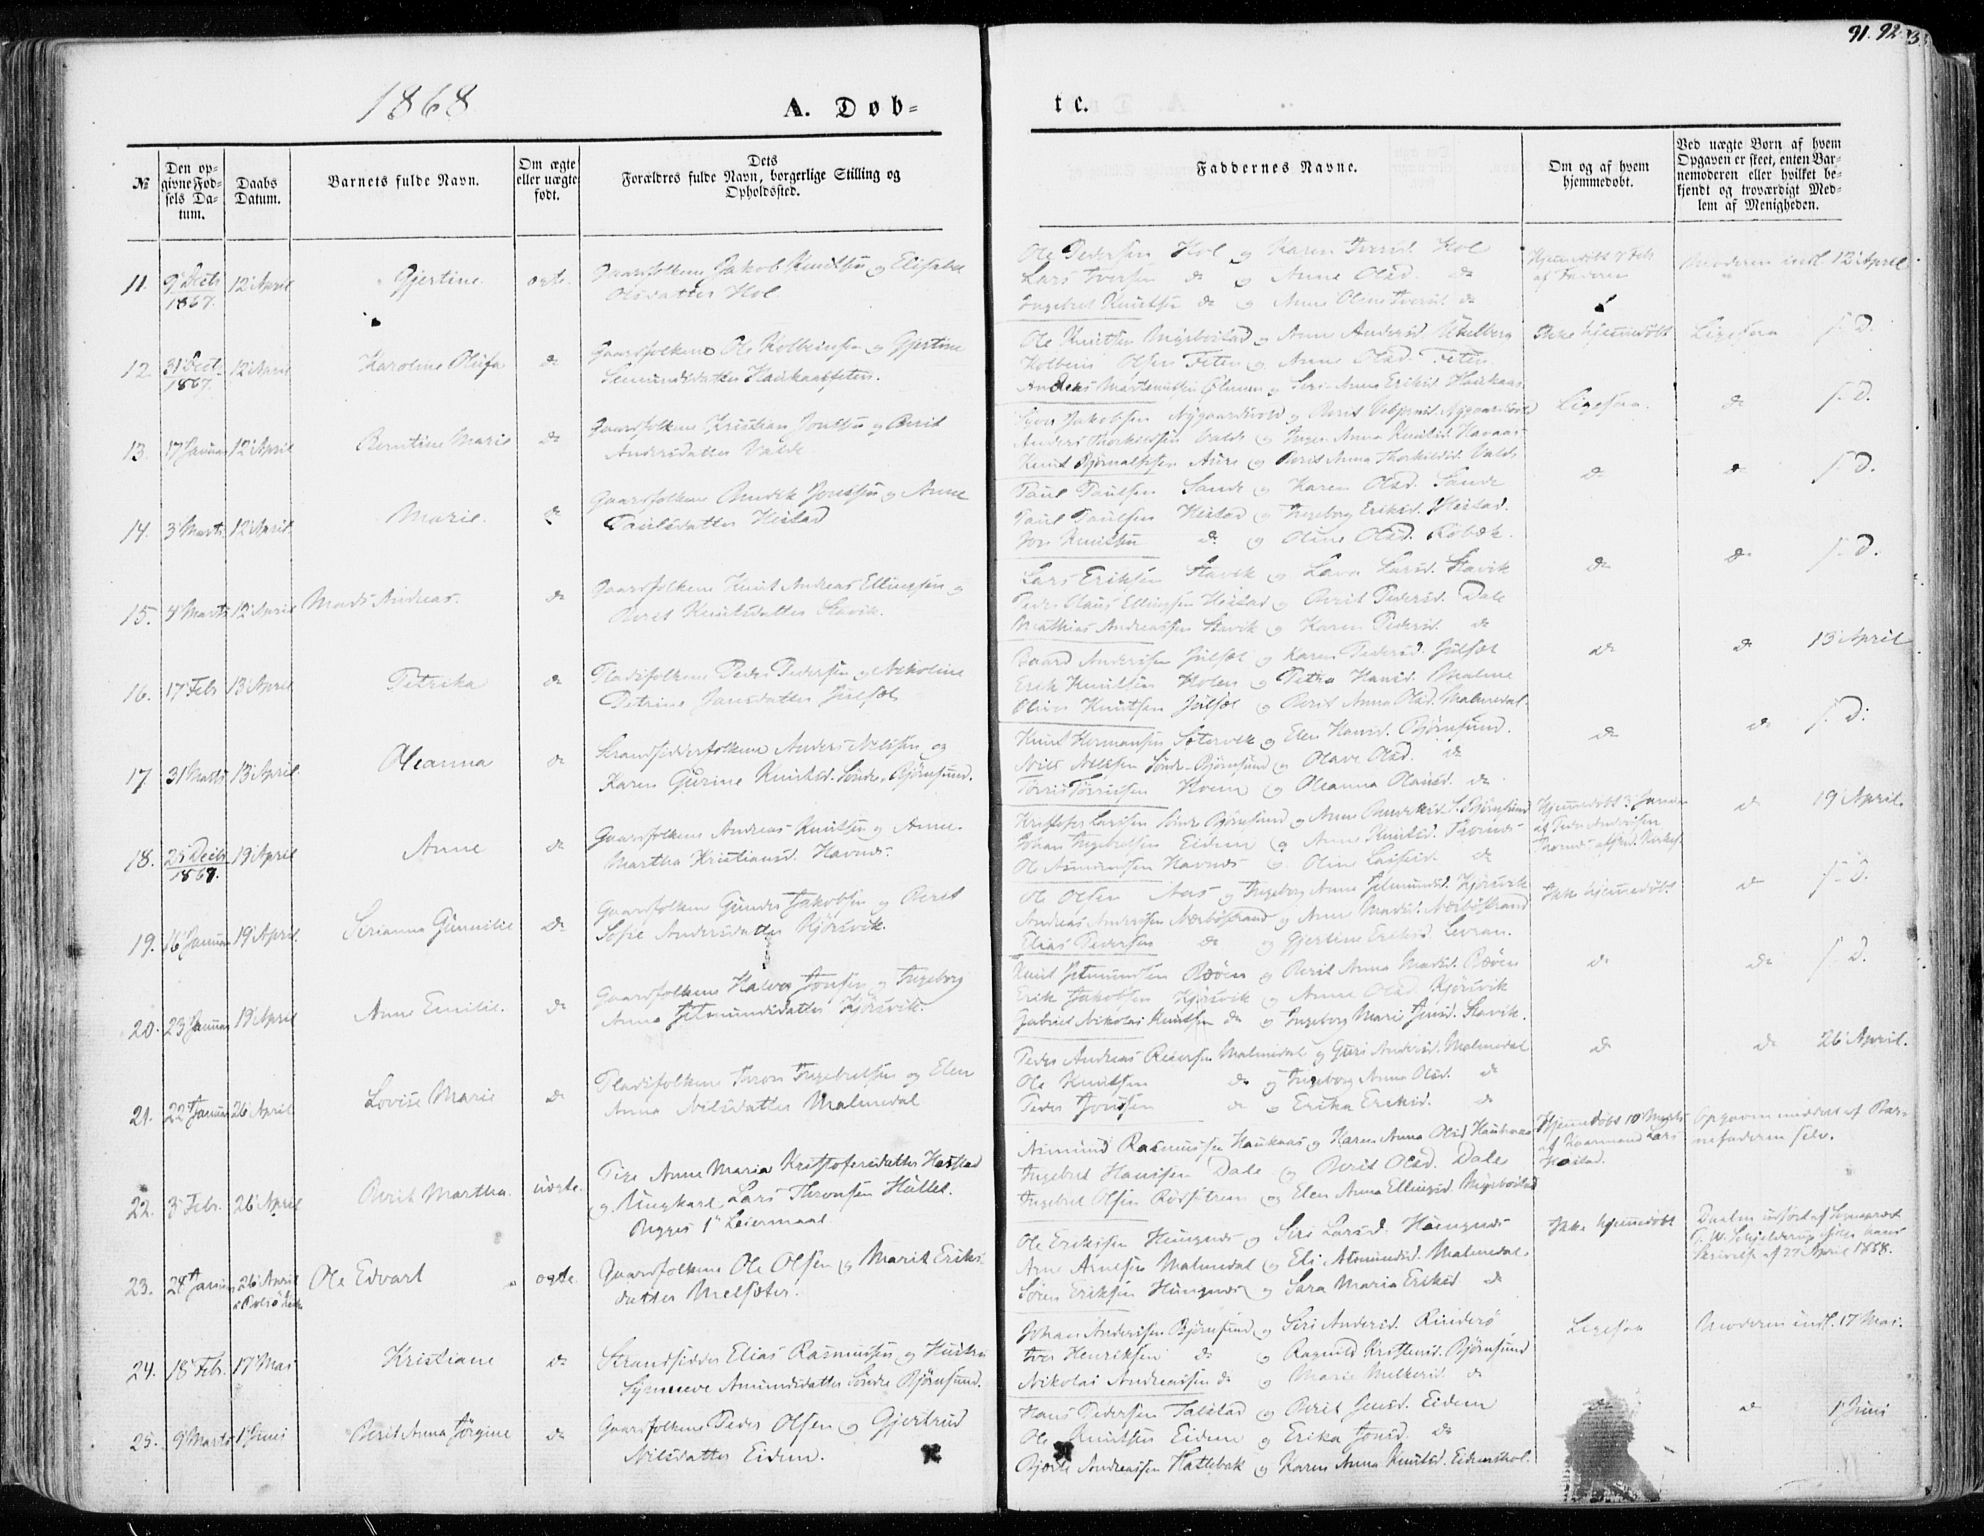 91. 92
1868
A. Døb=
te.
№
Den op-
givne Fød-
sels Da-
tum.
Daabs
Datum.
Barnets fulde Navn.
Om ægte
eller uægte
født.
Dets
Forældres fulde Navn, borgerlige Stilling og
Opholdssted.
Faddernes Navne.
Om og af hvem
hjemmedøbt.
Ved uægte Børn af hvem
Opgaven er skeet, enten Bar-
nemoderen eller hvilket be-
kjendt og troværdigt Med-
lem af Menigheden.
11. 9 Decb 1867. 12 April Gjertine. ægte. Gaardfolkene Jakob Knutsen og Elisabet
Olsdatter Hol
Ole Pedersen Hol og Karen Iversd. Hol
Lars Iversen do og Anne Olsd. do
Ingebret Knutsen do og Anne Oline Iversd. do
Hjemmedøbt 7 Feb
af Faderen
Moderen indl. 12 April
12. 31 Decb 1867. 12 April Karoline Olufa do Gaardfolkene Ole Kolbeinsen og Gjertine
Semundsdatter Haukaasfeten.
Ole Knutsen Mygebostad og Anne Andersd.
Kolbein Olsen Feten og Anne Olsd. Feten
Anders Martinussen og Siri Anna Eriksd. Haukaas
Ikke hjemmedøbt Ligesaa s. D.
13. 17 Januar 12 April Berntine Marie do Gaardfolkene Kristian Jonsen og Berit
Andersdatter Valde
Jakobsen Nygaardsvold og Berit
Anders Thorkildsen Valde og Inger Anna Knutsd.
Knut Aure og Berit Anna Thorkildsd. Valde
Ligesaa. do s. D.
14. 3 Marts 12 April Marie. do Gaardfolkene Amdik Jonsen og Anne
Paulsdatter Hestad
Paul Paulsen Sande og Karen Olsd. Sande
Paul Paulsen Hestad og Ingeborg Eriksd. Hestad.
Knutsen do og Oline Olsd. Røbæk.
do s. D.
15. 4 Marts 12 April Mads Andreas. do Gaardfolkene Knut Andreas Ellingsen og
Beret Knutsdatter Stavik.
Lars Eriksen Stavik og Lava Larsd. Stavik
Peder Claus Ellingsen Hestad og Berit Pedersd. Dale
Mathias Andreassen Stavik og Karen Pedersd. do
do do s. D.
16. 17 Feb 13 April Petrika do Pladsfolkene Peder Pedersen og Nekoline
Petrine Jansdatter Julset
Baard Andersen Julset og Karen Pedersd. Julset
Erik Knutsen Holen og Petra Hansd. Malme
Oliver Knutsen Julset og Berit Anna Olsd. Malmedal.
do do 13 April
17. 31 Marts 13 April. Oleanna do Strandsidderfolkene Anders Nilsen og
Karen Gurine Knutsd. Søndre Bjørnsund.
Knut Hermansen Sætervik og Elen Hansd. Bjørnsund.
Nils Nilsen Søndre Bjørnsund og Olave Olsd. do
Tørris Tørrissen Hoem og Oleanna Olausd. do
do do s. D.
18. 25 Decb 1867. 19 April Anne do Gaardfolkene Andreas Knutsen og Anne
Martha Kristiansd. Havnes.
Kristofer Larssen Søndre Bjørnsund og Anne Amdiksd. S. Bjørnsund
Johan Ingebretsen Eidem og Anne Knutsd. Thornes
Ole Asmundsen Havnes og Oline Larsesd. do
Hjemmedøbt 3 Januar
af Peder Andersen
do 19 April.
19. 16 Januar 19 April. Serianna Gunnilie do Gaardfolkene Gunder Jakobsen og Berit
Sofie Andersdatter Kjørsvik.
Ole Olsen Aas og Ingeborg Anne Jetmundsd. Kjørsvik
Andreas Andersen Nærbøstrand og Anne Madsd. Nærbøstrand
Elias Pedersen do og Gjertine Eriksd. Levran.
Ikke hjemmedøbt do s. D.
20. 23 Januar 19 April Anne Emilie. do Gaardfolkene Halvor Jonsen og Ingeborg
Anna Jetmundsdatter Kjørsvik.
Knut Jetmundsen Bøen og Berit Anna Madsd. Bøen
Erik Jakobsen Kjørsvik og Anne Olsd. Kjørsvik
Gabriel Nikolai Knutsen do og Ingeborg Marie Jensd. Stavik.
do do s. D.
21. 22 Januar 26 April Lovise Marie do Pladsfolkene Thron Ingebretsen og Elen
Anna Nilsdatter Malmedal
Peder Andreas Reiersen Malmedal og Guri Andersd. Malmedal
Ole Knutsen do og Ingeborg Anna Olsd. do
Peder Jonsen do og Erika Eriksd. do
do do 26 April.
22. 3 Febr. 26 April Berit Martha. uægte. Pige Anne Maria Kristofersdatter Hestad
og Ungkarl Lars Thronsen Hullet.
Begges 1ste Leiermaal
Asmund Rasmussen Haukaas og Karen Anna Olsd. Haukaas
Ingebret Hansen Dale og Berit Olsd. Dale
Ingebret Olsen Rødsetrem og Elen Anna Ellingsd. Mygebostad
Hjemmedøbt 10 Marts
af Kaarmand Lars
Hestad.
Opgaven meddelt af Bar-
nefaderen selv.
23. 24 Januar 26 April Ole Edvart ægte. Gaardfolkene Ole Olsen og Marit Eriks-
datter Melsæter.
Ole Eriksen Hungnes og Siri Larsd. Hungnes
Arne Arnesen Malmedal og Eli Asmundsd. Malmedal
Søren Eriksen Hungnes og Sara Maria Eriksd. do
Ikke hjemmedøbt
Daaben udført af Sognepræst
Schjelderup ifølge hans
Skrivelse af 27 April 1868.
24. 18 Feb. 17 Mai Kristiane do Strandsidder Elias Rasmussen og Hustru
Synneve Amundsdatter Søndre Bjørnsund.
Johan Andersen Bjørnsund og Siri Andersd. Rinderø
Iver Henriksen do og Ragnild Kristensd. Bjørnsund
Nikolai Andreassen do og Marie Melkersd. do
Ligesaa Moderen indl. 17 Mai.
25. 9 Marts 1 Juni Berit Anna Jørgine do Gaardfolkene Peder Olsen og Gjertrud
Nilsdatter Eidem.
Hans Pedersen Talstad og Berit Jensd. Eidem
Ole Knutsen Eidem og Erika Jonsd. do
Bjerte Andreassen Hatlebak og Karen Anna Knutsd. Eidemshol.
do 1 Juni